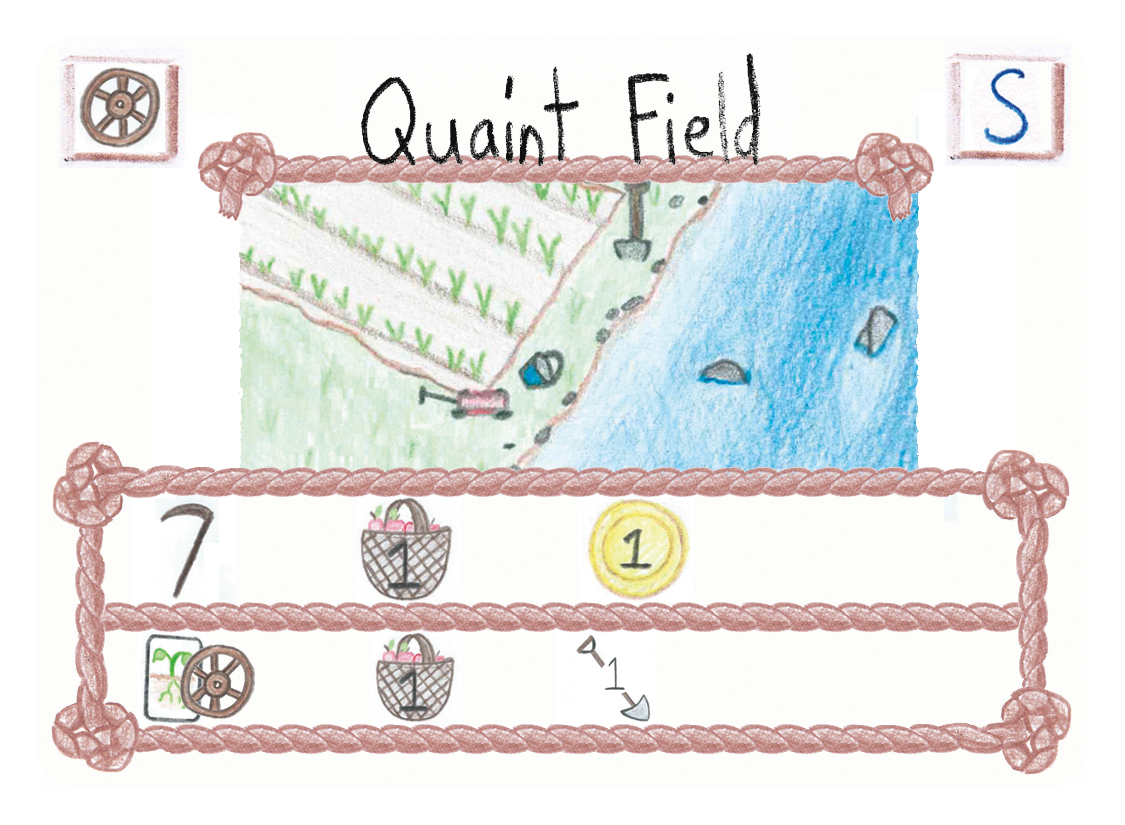 Quaint Field S
7 1 1
1 1